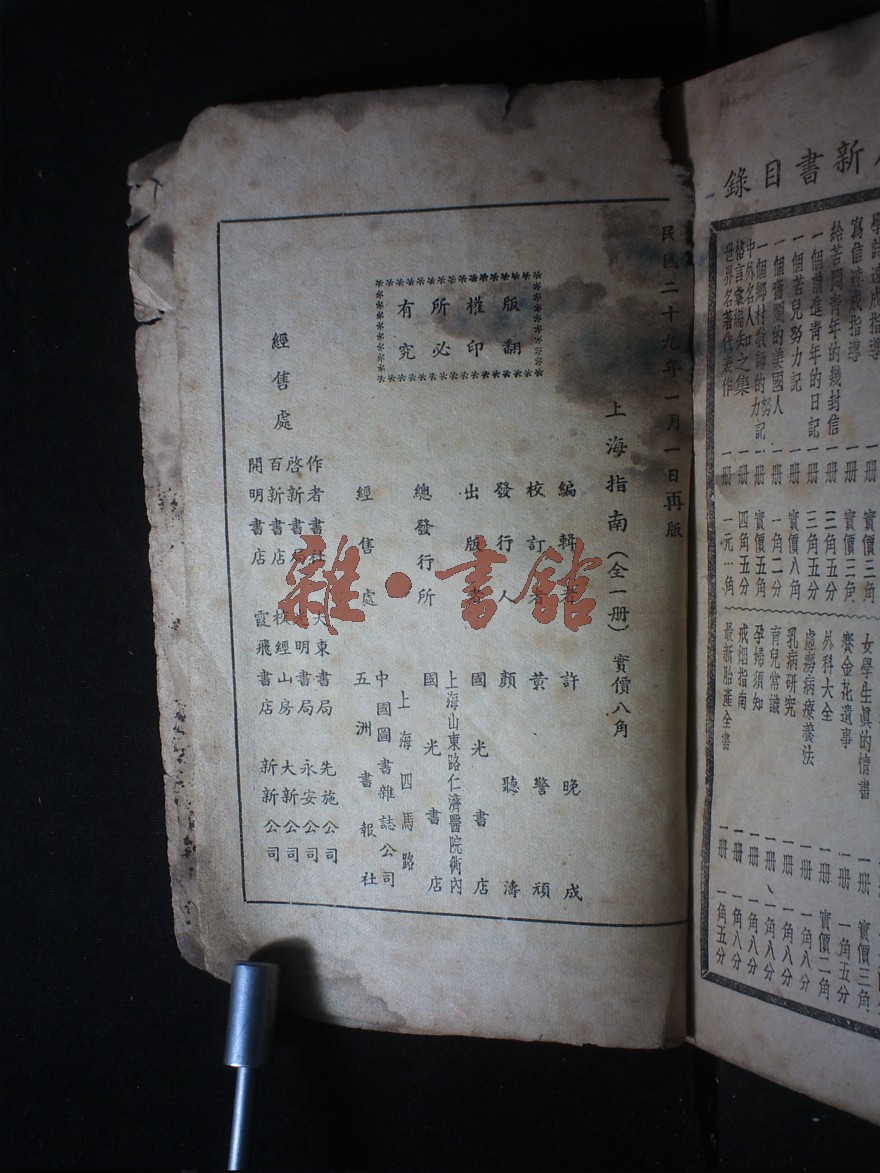 新書目錄
寫信速成指導 一冊 實價三角
給苦悶青年的幾封信 一冊 三角五分
一個前進青年的日記 一冊 三角五分
一個苦兒努力記 一冊 實價八角
一個奮鬭的美國人 一冊 一角二分
一個鄉村教師的努力記 一冊 實價五角
中外名人知之集
格言彙編 一冊 四角五分
世界名著代表作 一冊 一元一角
女學生真的情書 一冊 實價三角
賽金花遺事 一冊 一角五分
外科大全 一冊 實價二角
虛癆病療養法 一冊 一角八分
乳病研究 一冊 一角八分
育兒常識 一冊 一角八分
孕婦須知 一冊 一角八分
戒烟指南 一冊 一角八分
最新胎產全書 一冊 一角五分
民國二十九年一月一日再版
上海指南(全一冊)實價八角
版權所有
翻印必究
編輯者 許晚成
校訂者 黄警頑
發行人 顏聽濤
出版者 國光書店
上海山東路仁濟醫院衖內
總發行所 國光書店
上海四馬路
經售處 中國圖書雜誌公司
五洲書報社
經售處
作者書社 大東書局 先施公司
啓新書局 光明書局 永安公司
百新書店 校經山房 大新公司
開明書店 霞飛書店 新新公司
雜·書館